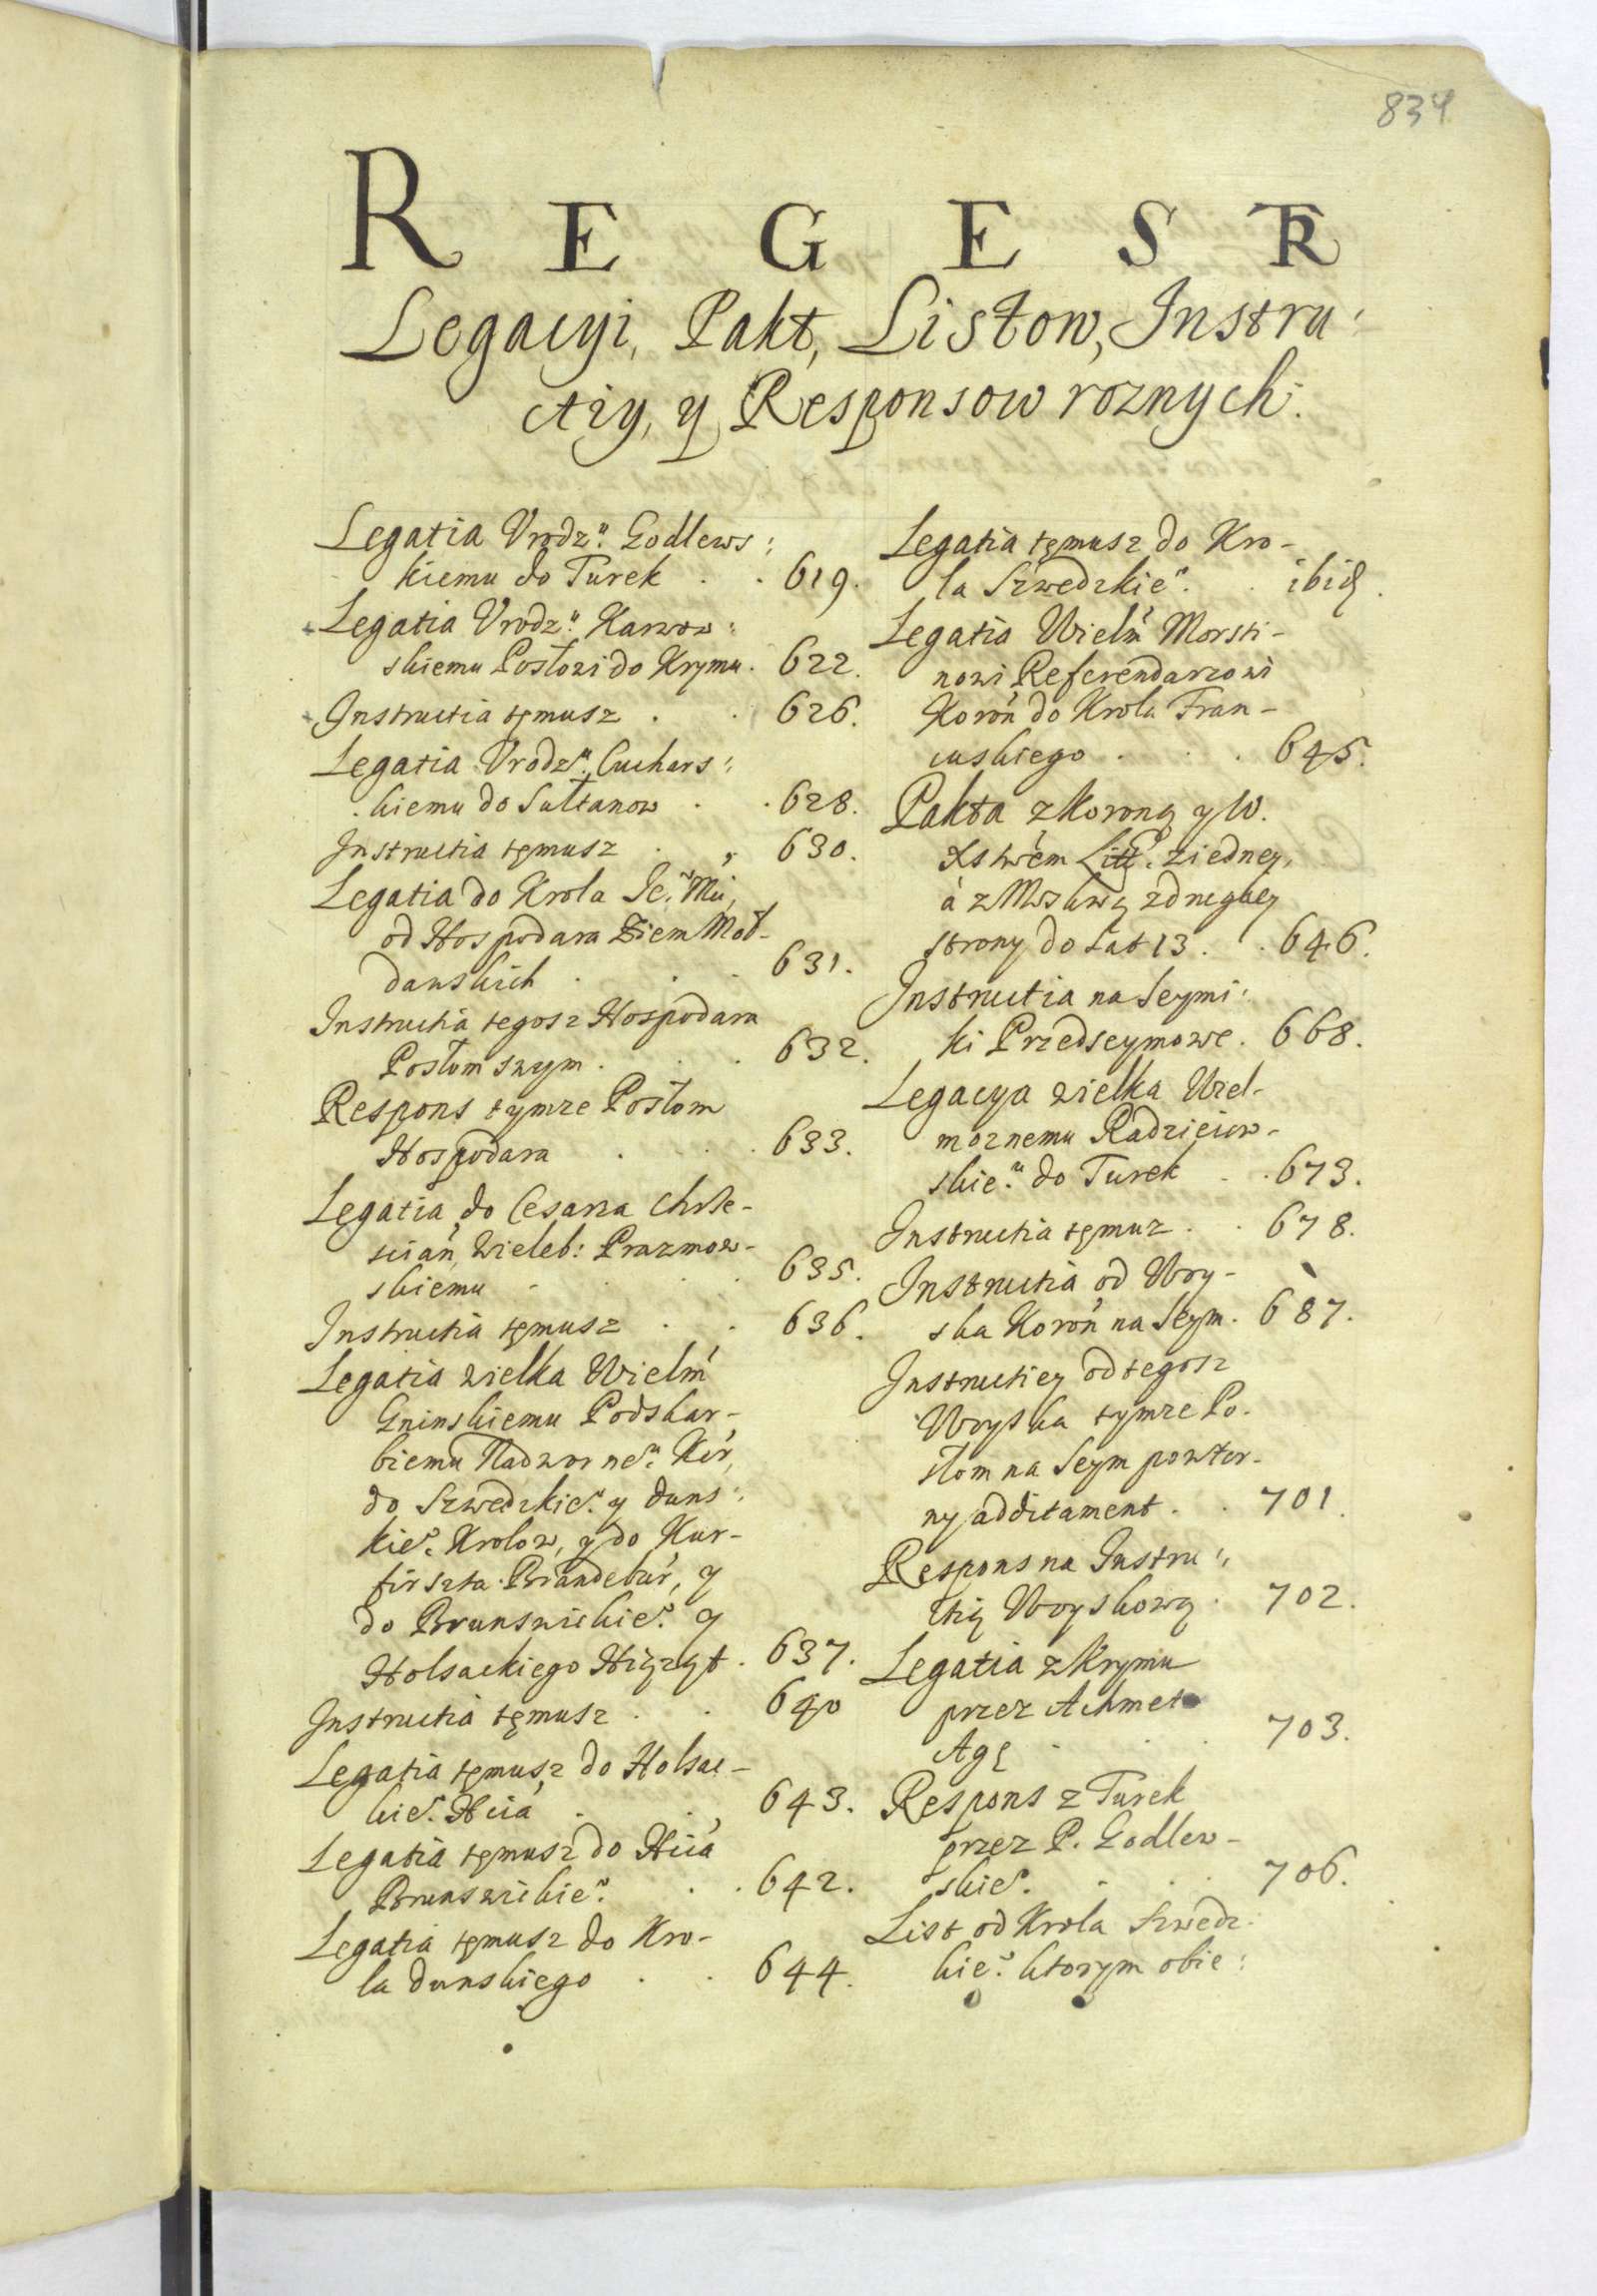 834
REGESTR
Legacyi, Pakt, Listow, Instru:
ctiy, y Responsow roznych.
Legatia Vrodz.º Godlews:
kiemu do Turek . . 619.
Legatia Vrodz.º Karwow:
skiemu Posłowi do Krymu. 622.
Instructia tęmusz . . 626.
Legatia Vrodz.º Cuchars:
kiemu do Sułtanow . . 628.
Instructia tęmusz . . 630.
Legatia do Krola Je.º Mći,
od Hospodara Ziem Moł-
dawskich . . . 631.
Instructia tegosz Hospodara
Posłom swym . . . 632.
Respons tymze Posłom
Hospodara . . . 633.
Legatia do Cesarza Chrze-
scian, Wieleb: Prazmow-
skiemu - . . . 635.
Instructia tęmusz . . 636.
Legatia wielka Wielm
Gninskiemu Podskar-
biemu Nadworne.º Kor,
do Szwedzkie.º y duns:
kie.º Krolow, y do Kur-
firszta Brandebur, y
do Brunswickie.º y
Holsackiego Xiążąt . 637.
Instructia tęmusz . . 640
Legatia tęmusz do Holsac-
kie.º Xcia . . 643.
Legatia tęmusz do Xcia
Brunswickie.º . . 642.
Legatia tęmusz do Kro-
la dunskiego . . 644.
Legatia tęmusz do Kro-
la Szwedzkie.º . ibid.
Legatia Wielm Morsti-
nowi Referendarzowi
Koron do Krola Fran-
cuskiego . . . 645.
Pakta z Koroną y W.
Xstwem Litt.º z iedney,
a z Moskwą z drugiey
strony do Lat 13 . . 646.
Instructia na Seymi:
ki Przedseymowe . 668.
Legacya wielka Wiel-
moznemu Radzieiow-
skie.º do Turek . . 673.
Instructia tęmuz . . 678.
Instructia od Woy-
ska Koron na Seym . 687.
Instructiey od tegosz
Woyska tymze Po-
słom na Seym powtor-
ny additament . . 701.
Respons na Instru:
ctią Woyskową . 702.
Legatia z Krymu
przez Achmet
Agę . . . 703.
Respons z Turek
przez P. Godlew-
skie.º . . . 706.
List od Krola Szwedz:
kie.º ktorym obie: